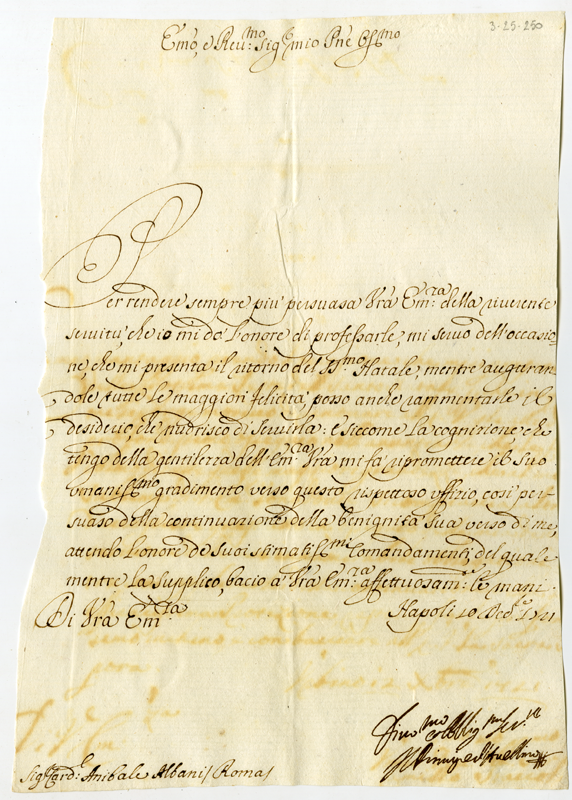 3-25-250
Emo, e Reu:mo Sigre mio Pne Ossmo
Per rendere sempre più persuasa Vra Em:za della riuerente
seruitù, che io mi dò l'onore di professarle, mi seruo dell'occasio=
ne, che mi presenta il ritorno del SSmo Natale, mentre auguran
dole tutte le maggiori felicità, posso anche rammentarle il
desiderio, che nudrisco di seruirla: e siccome la cognizione, che
tengo della gentilezza dell'Em:za Vra mi fà ripromettere il suo
vmanissmo gradimento verso questo rispettoso vffizio, così per
suaso della continuazione della benignità sua verso di me,
attendo l'onore de suoi stimatissmi Comandamenti, del quale
mentre la supplico, bacio a Vra Em:za affettuosam:te le mani.
Di Vra Em:za Napoli 20 Dec:e 1711
Diuo:mo et Obblig:mo Ser:re
Il Principe d'Auellino
Sigre Card:le Anibale Albani / Roma /